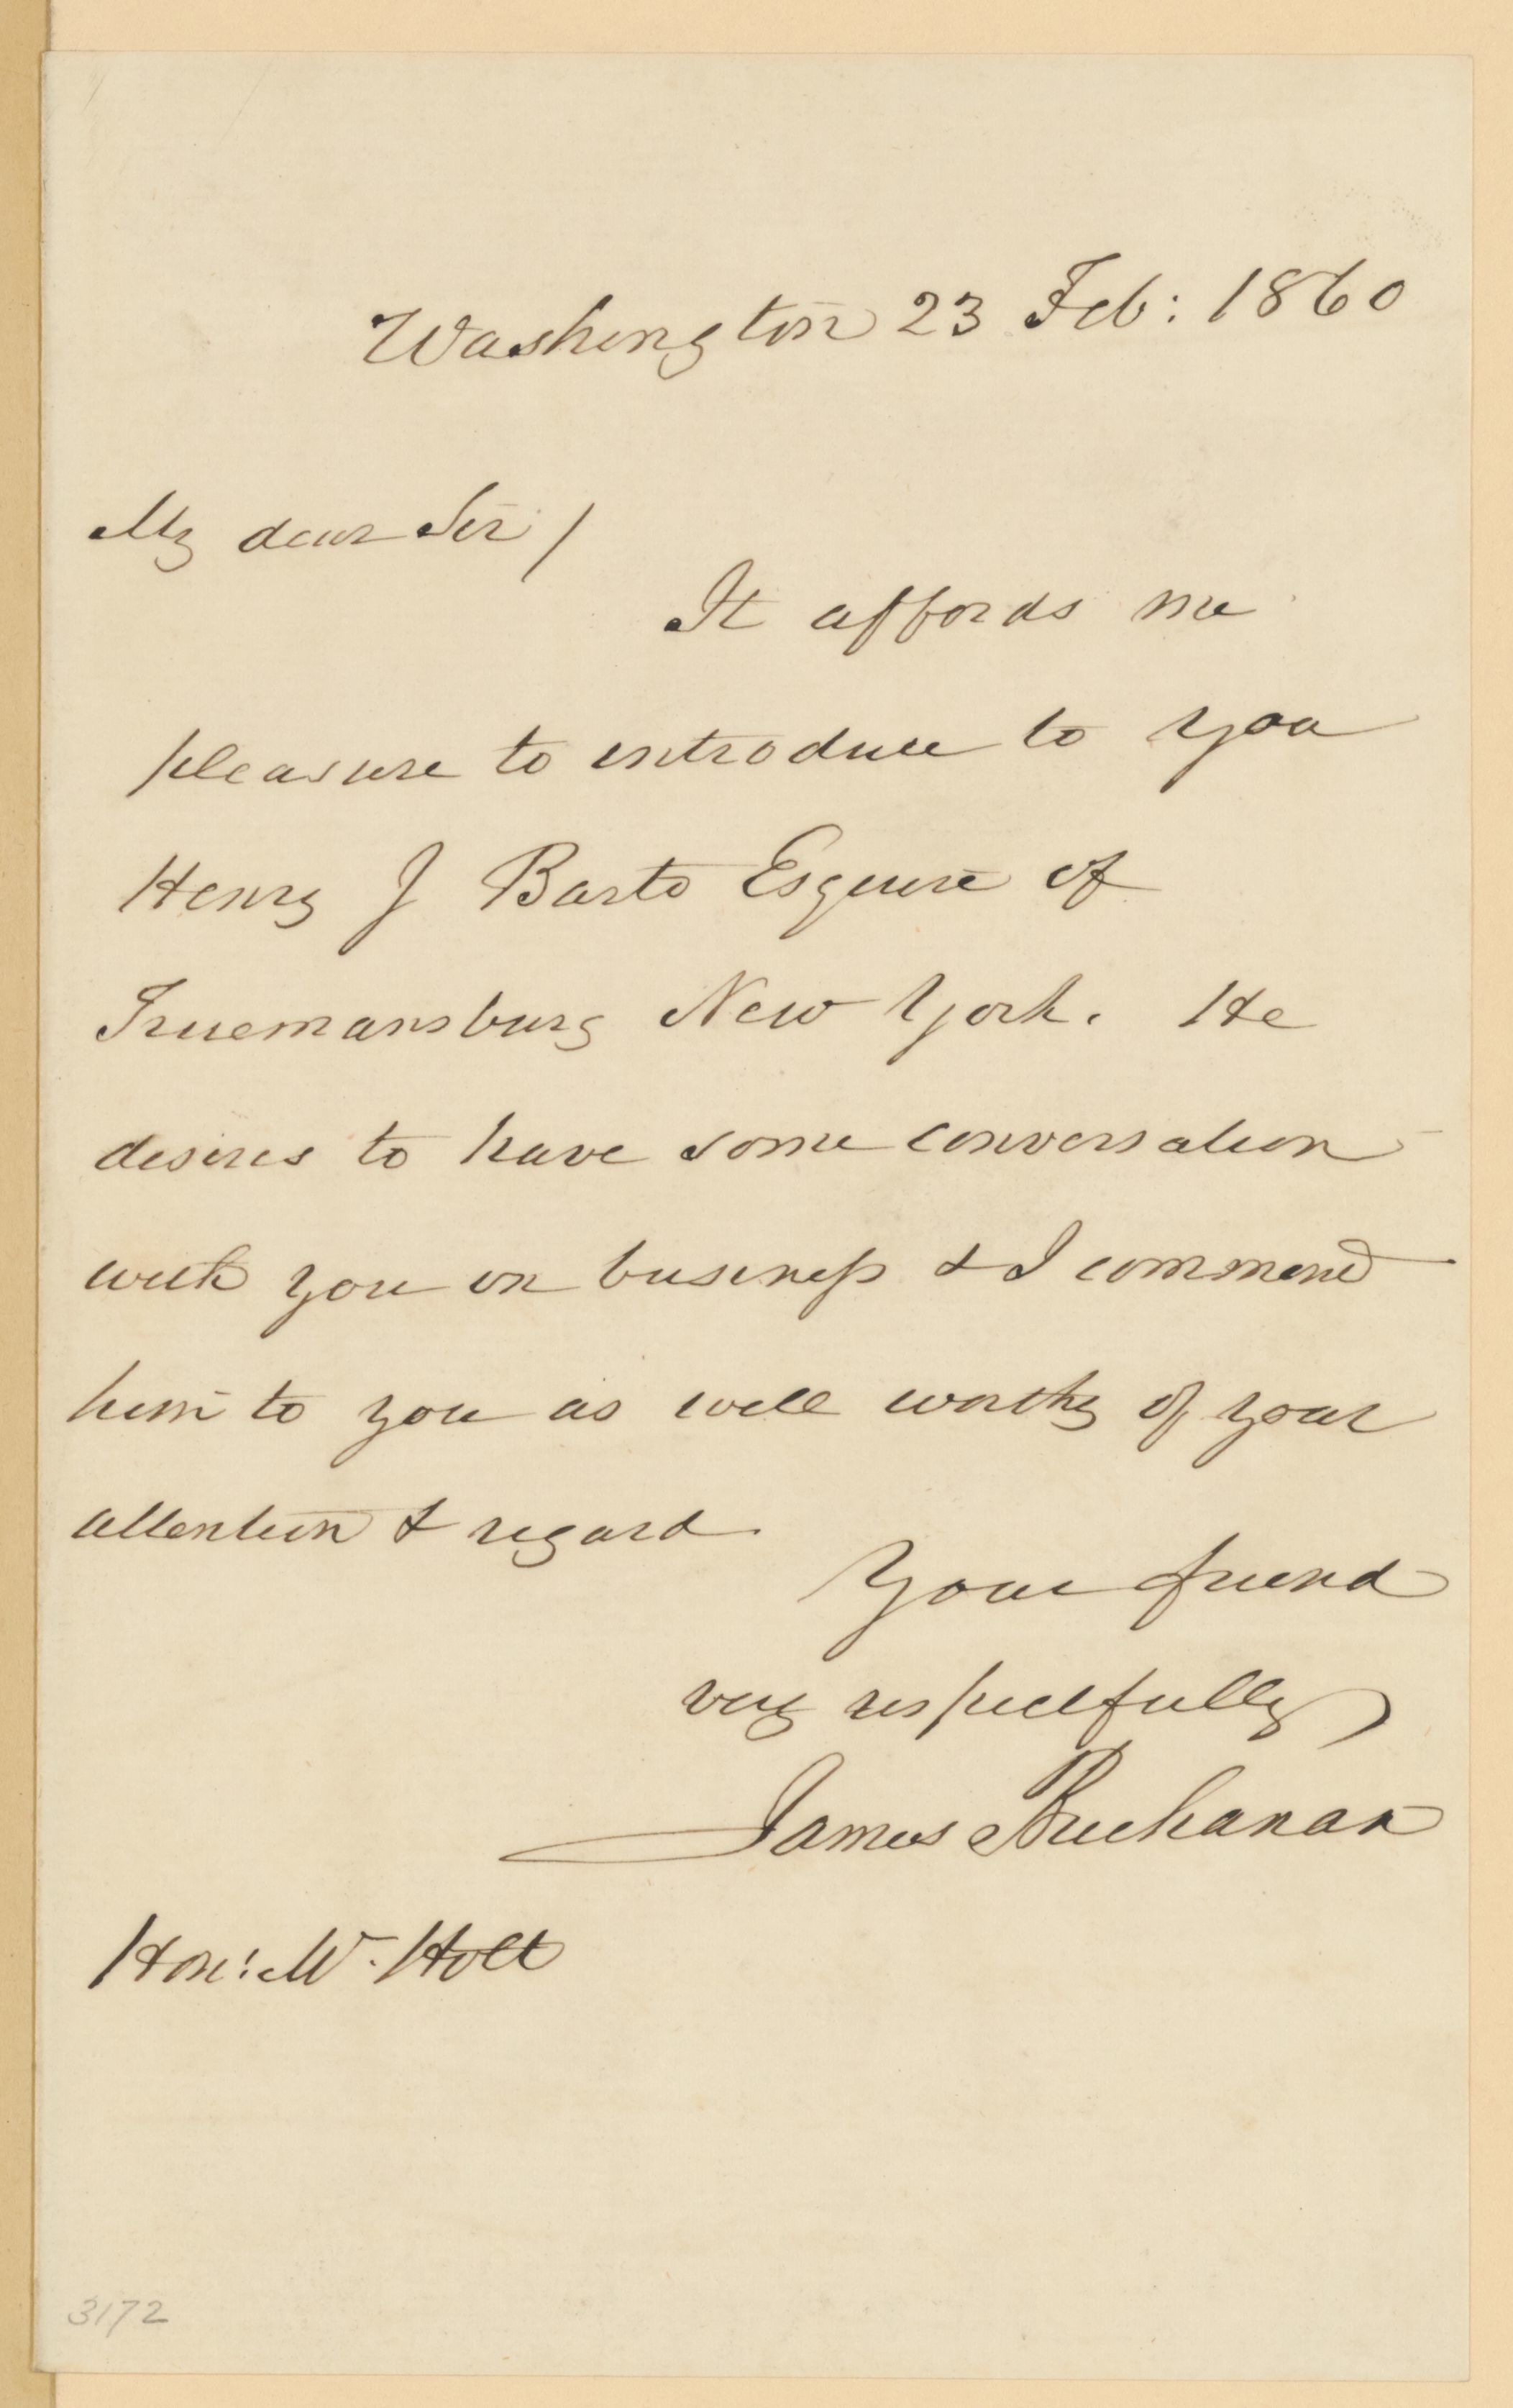 Washington 23 Feb: 1860
My dear Sir /
It affords me
pleasure to introduce to you
Henry J Barto Esquire of
Truemansburg New York. He
desires to have some conversation
with you on business & I commend
him to you as well worthy of your
attention & regard.
Your friend
very respectfully
James Buchanan
Hon: Mr. Holt
3172